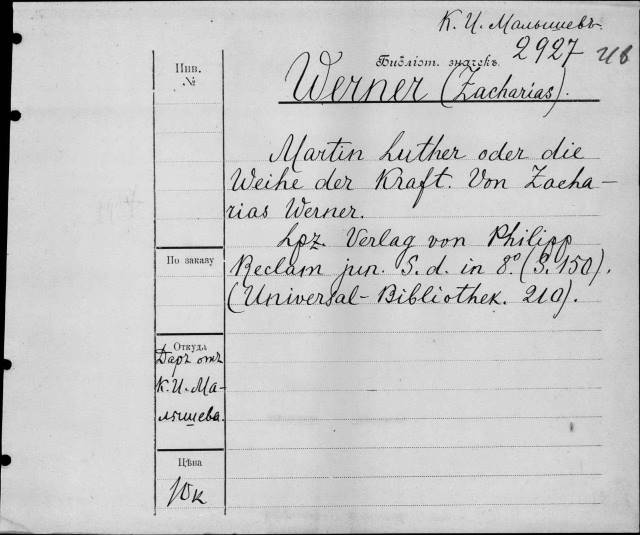 К. И. Малышевъ.
Библіот. значекъ 2927 ИБ
Werner (Zacharias).
Martin Luther oder die
Weihe der Kraft. Von Zacha-
rias Werner.
Lpz. Verlag von Philipp
Reclam jun. S. d. in 8º. (S. 150).
(Universal-Bibliothek. 210).
Инв.
№
По заказу
Откуда
Даръ отъ
К. И. Ма-
лышева.
Цѣна
10к